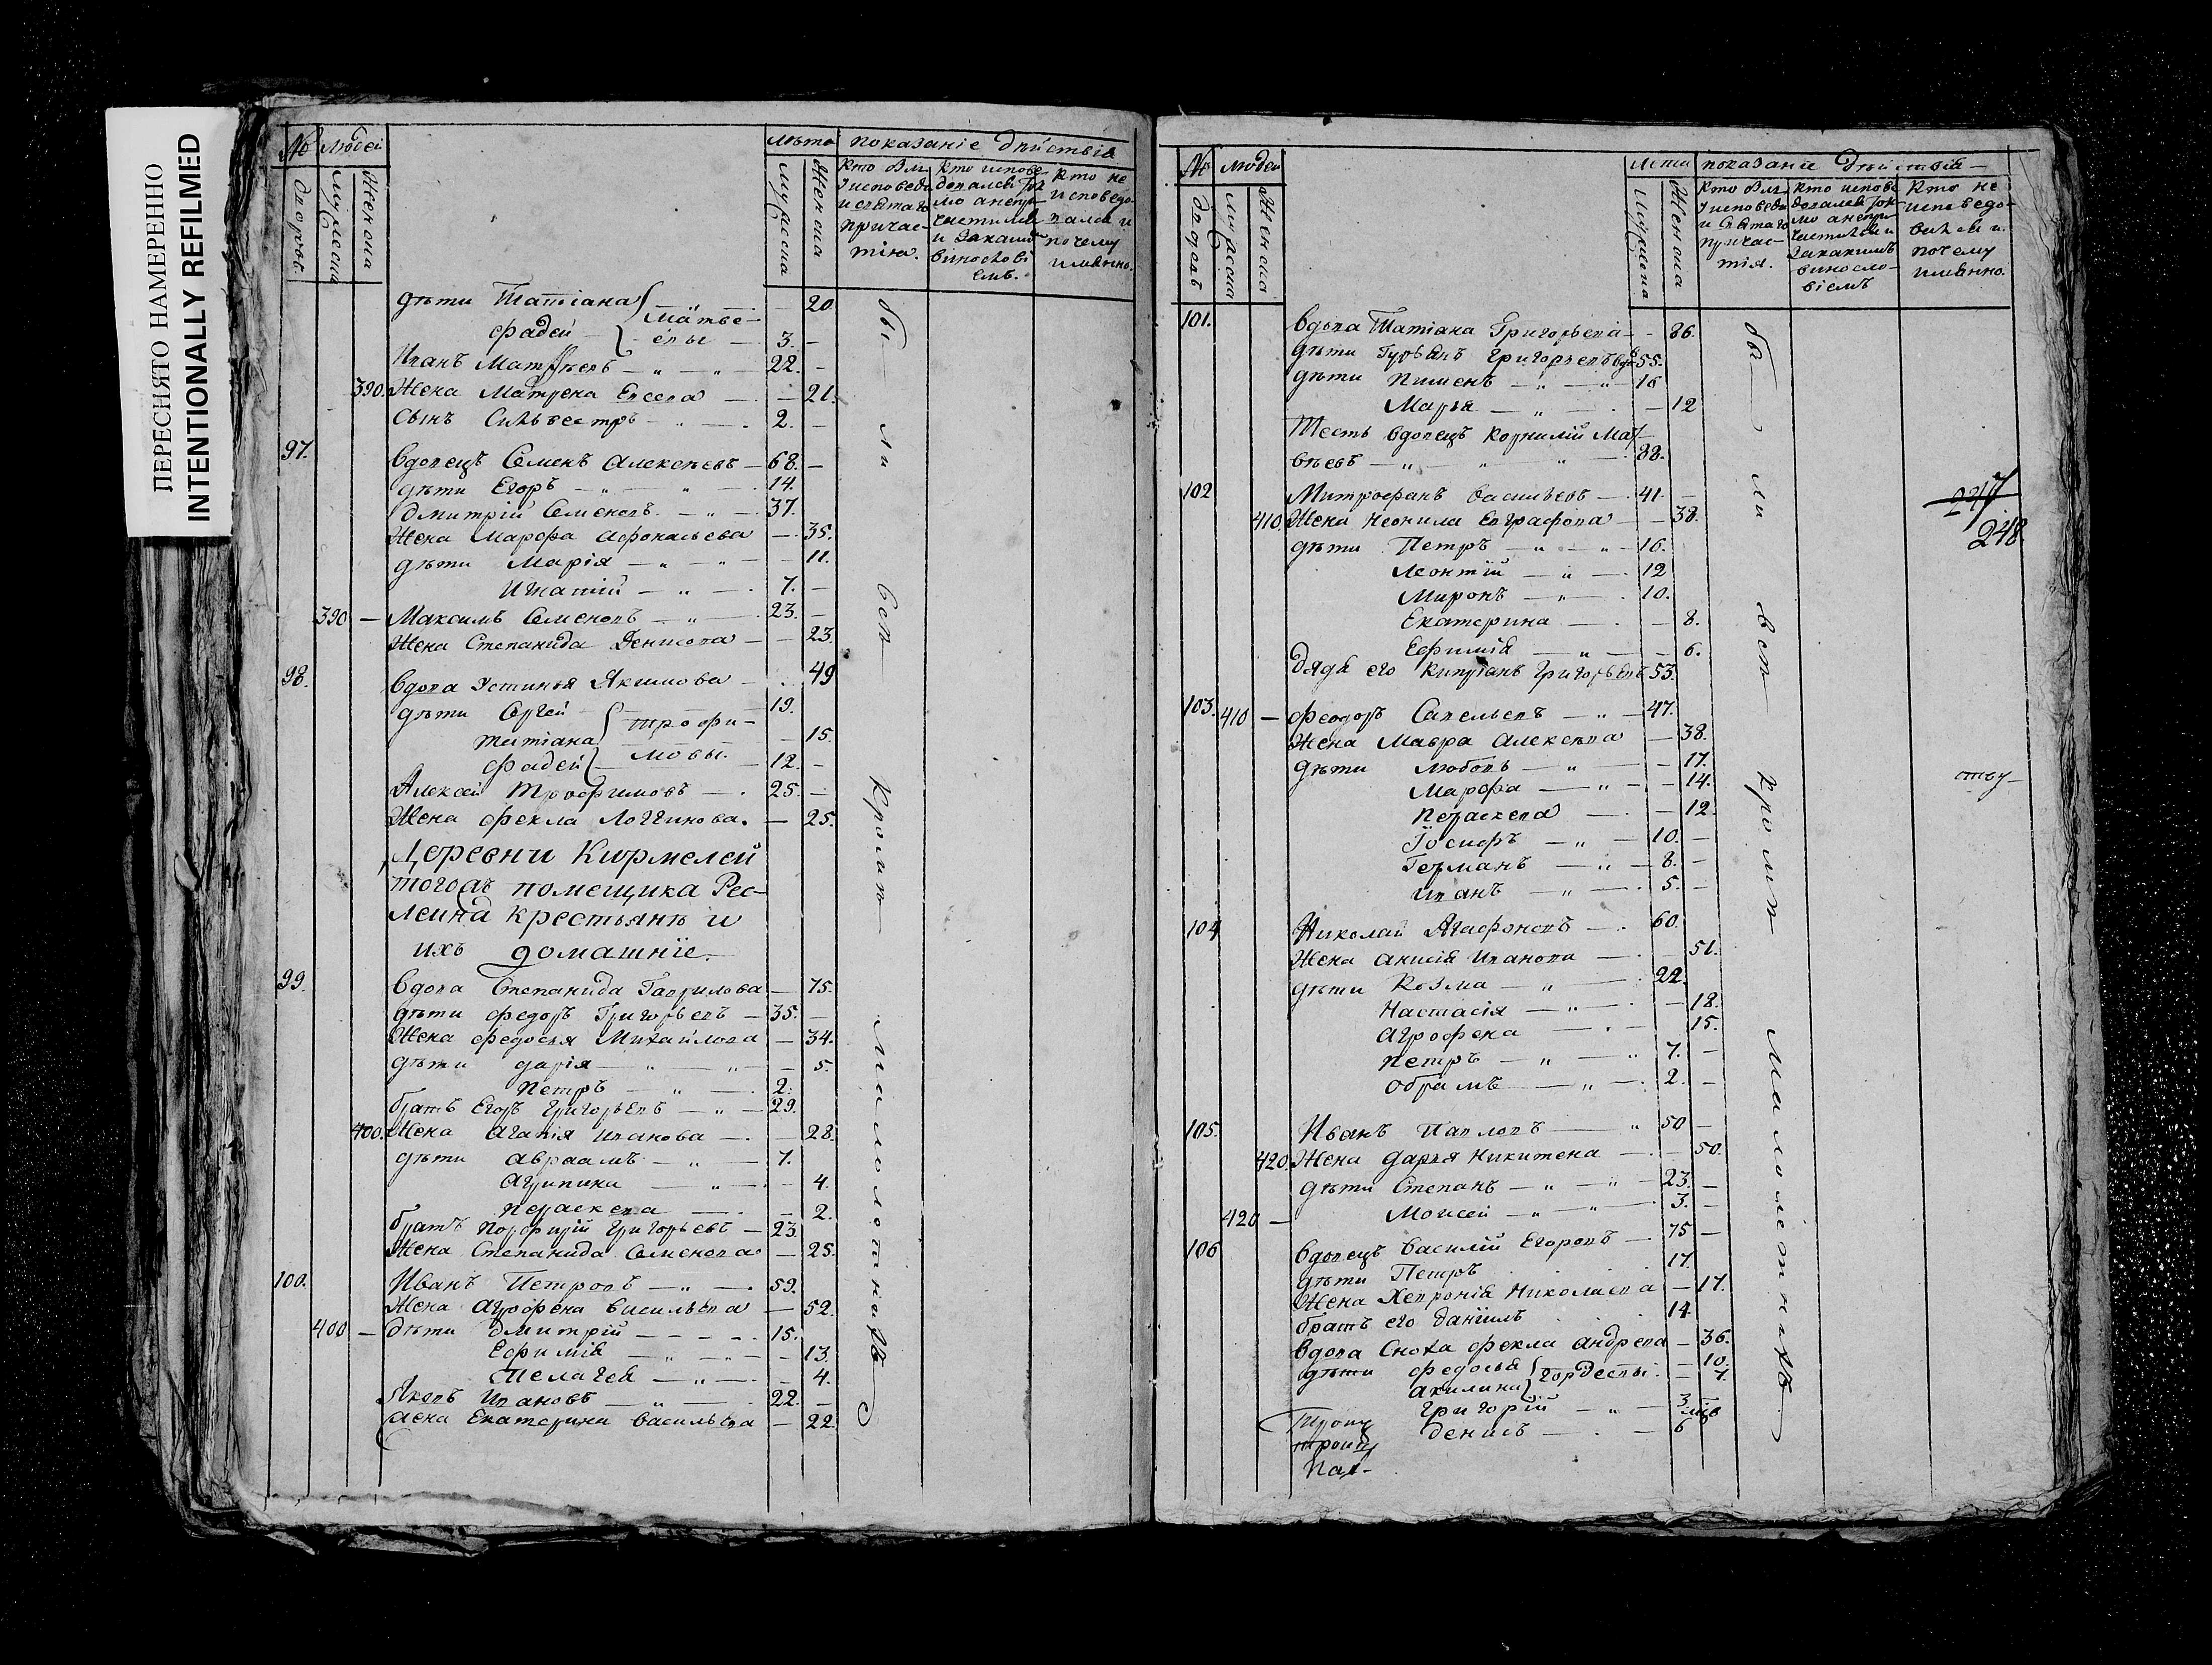 ПЕРЕСНЯТО НАМЕРЕННО
INTENTIONALLY REFILMED
№ людей лѣта показаніе дѣйствія
дворовъ. мужеска женска мужеска женска
кто был у исповѣди и святаго причастія.
кто исповедовался токмо а не причастился и за каким винословіемъ.
кто не исповедовался и почему имянно.
дѣти Татіана 20
Матвеевы
фадей 3.
Иванъ Матвѣевъ — „ — „ — 22. —
390. Жена Матрена Евсева — — 21.
сынъ Сильвестръ — „ — 2. —
97. вдовецъ Семенъ Алексѣевъ — 68. —
дѣти Егоръ — „ — „ — 14.
Дмитрій Семеновъ — „ — 37.
Жена Марфа Афонасьева — 35.
дѣти Марія — „ — „ — 11.
Игнатий — „ — 7. —
390 — Максимъ Семеновъ — „ — 23. —
Жена Степанида Денисова — — 23
98. вдова Устинья Якимова — 49
дѣти Сергей 19.
Трофимовы.
татіана — 15.
фадей 12. —
Алексей Трофимовъ — 25. —
Жена фекла Логгинова. — 25.
Деревни Кирмелей
тогожъ помещика Рос-
леина крестьянѣ и
ихъ домашніе.
99. вдова Степанида Гаврилова — 75.
дѣти федоръ Григорьевъ — 35. —
Жена федосья Михайлова — 34.
дѣти дарія — „ — „ — 5.
Петръ — „ — 2.
братъ Егоръ Григорьевъ — „ — 29.
400. Жена Агапія Иванова — 28.
дѣти авраамъ — „ — 7.
Агрипина — „ — 4.
Параскева — 2.
братъ Порфирій Григорьевъ — 23.
Жена Степанида Семенова — 25.
100. Иванъ Петровъ — „ — 59.
Жена Агрофена Васильева — 52.
400 — дѣти Дмитрій 15.
Ефимія — „ — „ — 13.
Пелагея — „ — 4.
Яковъ Ивановъ — „ — 22. —
Жена Екатерина Васильева — 22.
были всѣ кромѣ малолѣтнихъ
№ людей лета показаніе дѣйствія —
дворовъ мужеска женска мужеска женска
кто был у исповеди и святаго причастія.
кто исповедовался токмо а не причастился и за какимъ винословіемъ
кто не исповедовался и почему имянно.
101. вдова Татіана Григорьева — 86.
дѣти Гурьянъ Григорьевъ вдо 55.
дѣти Пименъ — „ — „ — 16
Марья — „ — 12
Тесть вдовецъ Корнилій Мат-
вѣевъ — „ — „ — „ — 88.
102 Митрофанъ Васильевъ — 41. —
247
410 Жена Неонила Евграфова — — 38.
248
дѣти Петръ — „ — „ — 16.
Леонтій — „ — 12
Миронъ — „ — 10.
Екатерина — — 8.
Ефимія — „ — 6.
дядя его Кипріанъ Григорьевъ 53.
103. 410 — феодоръ Савельевъ — „ — 47.
Жена Мавра Алексѣва — 38.
дѣти Любовь — „ — 17.
Марфа — „ — 14.
Параскева — 12.
Іосифъ — „ — 10. —
Германъ — „ — 8. —
Иванъ — „ — 5. —
104 Николай Агафоновъ — 60.
Жена анисія Иванова — 51.
дѣти Козма — „ — 22.
Настасія — „ — 18.
Агрофена — 15.
Петръ — „ — „ 7. —
Обрамъ — „ — 2. —
105. Иванъ Павловъ — „ 50 —
420. Жена Дарья Никитена — 50.
дѣти Степанъ — „ — „ — 23. —
420 — Моисей — „ — „ — 3. —
106 вдовецъ Василій Егоровъ — 75 —
дѣти Петръ 17.
Жена Хевронія Николаева — 17.
братъ его Даніилъ 14.
вдова сноха фекла андрева — 36.
дѣти федосья — 10.
Гордеевы.
акилина — 7.
Григорій — „ — 3
Денисъ — 6
были всѣ кромѣ малолѣтнихъ